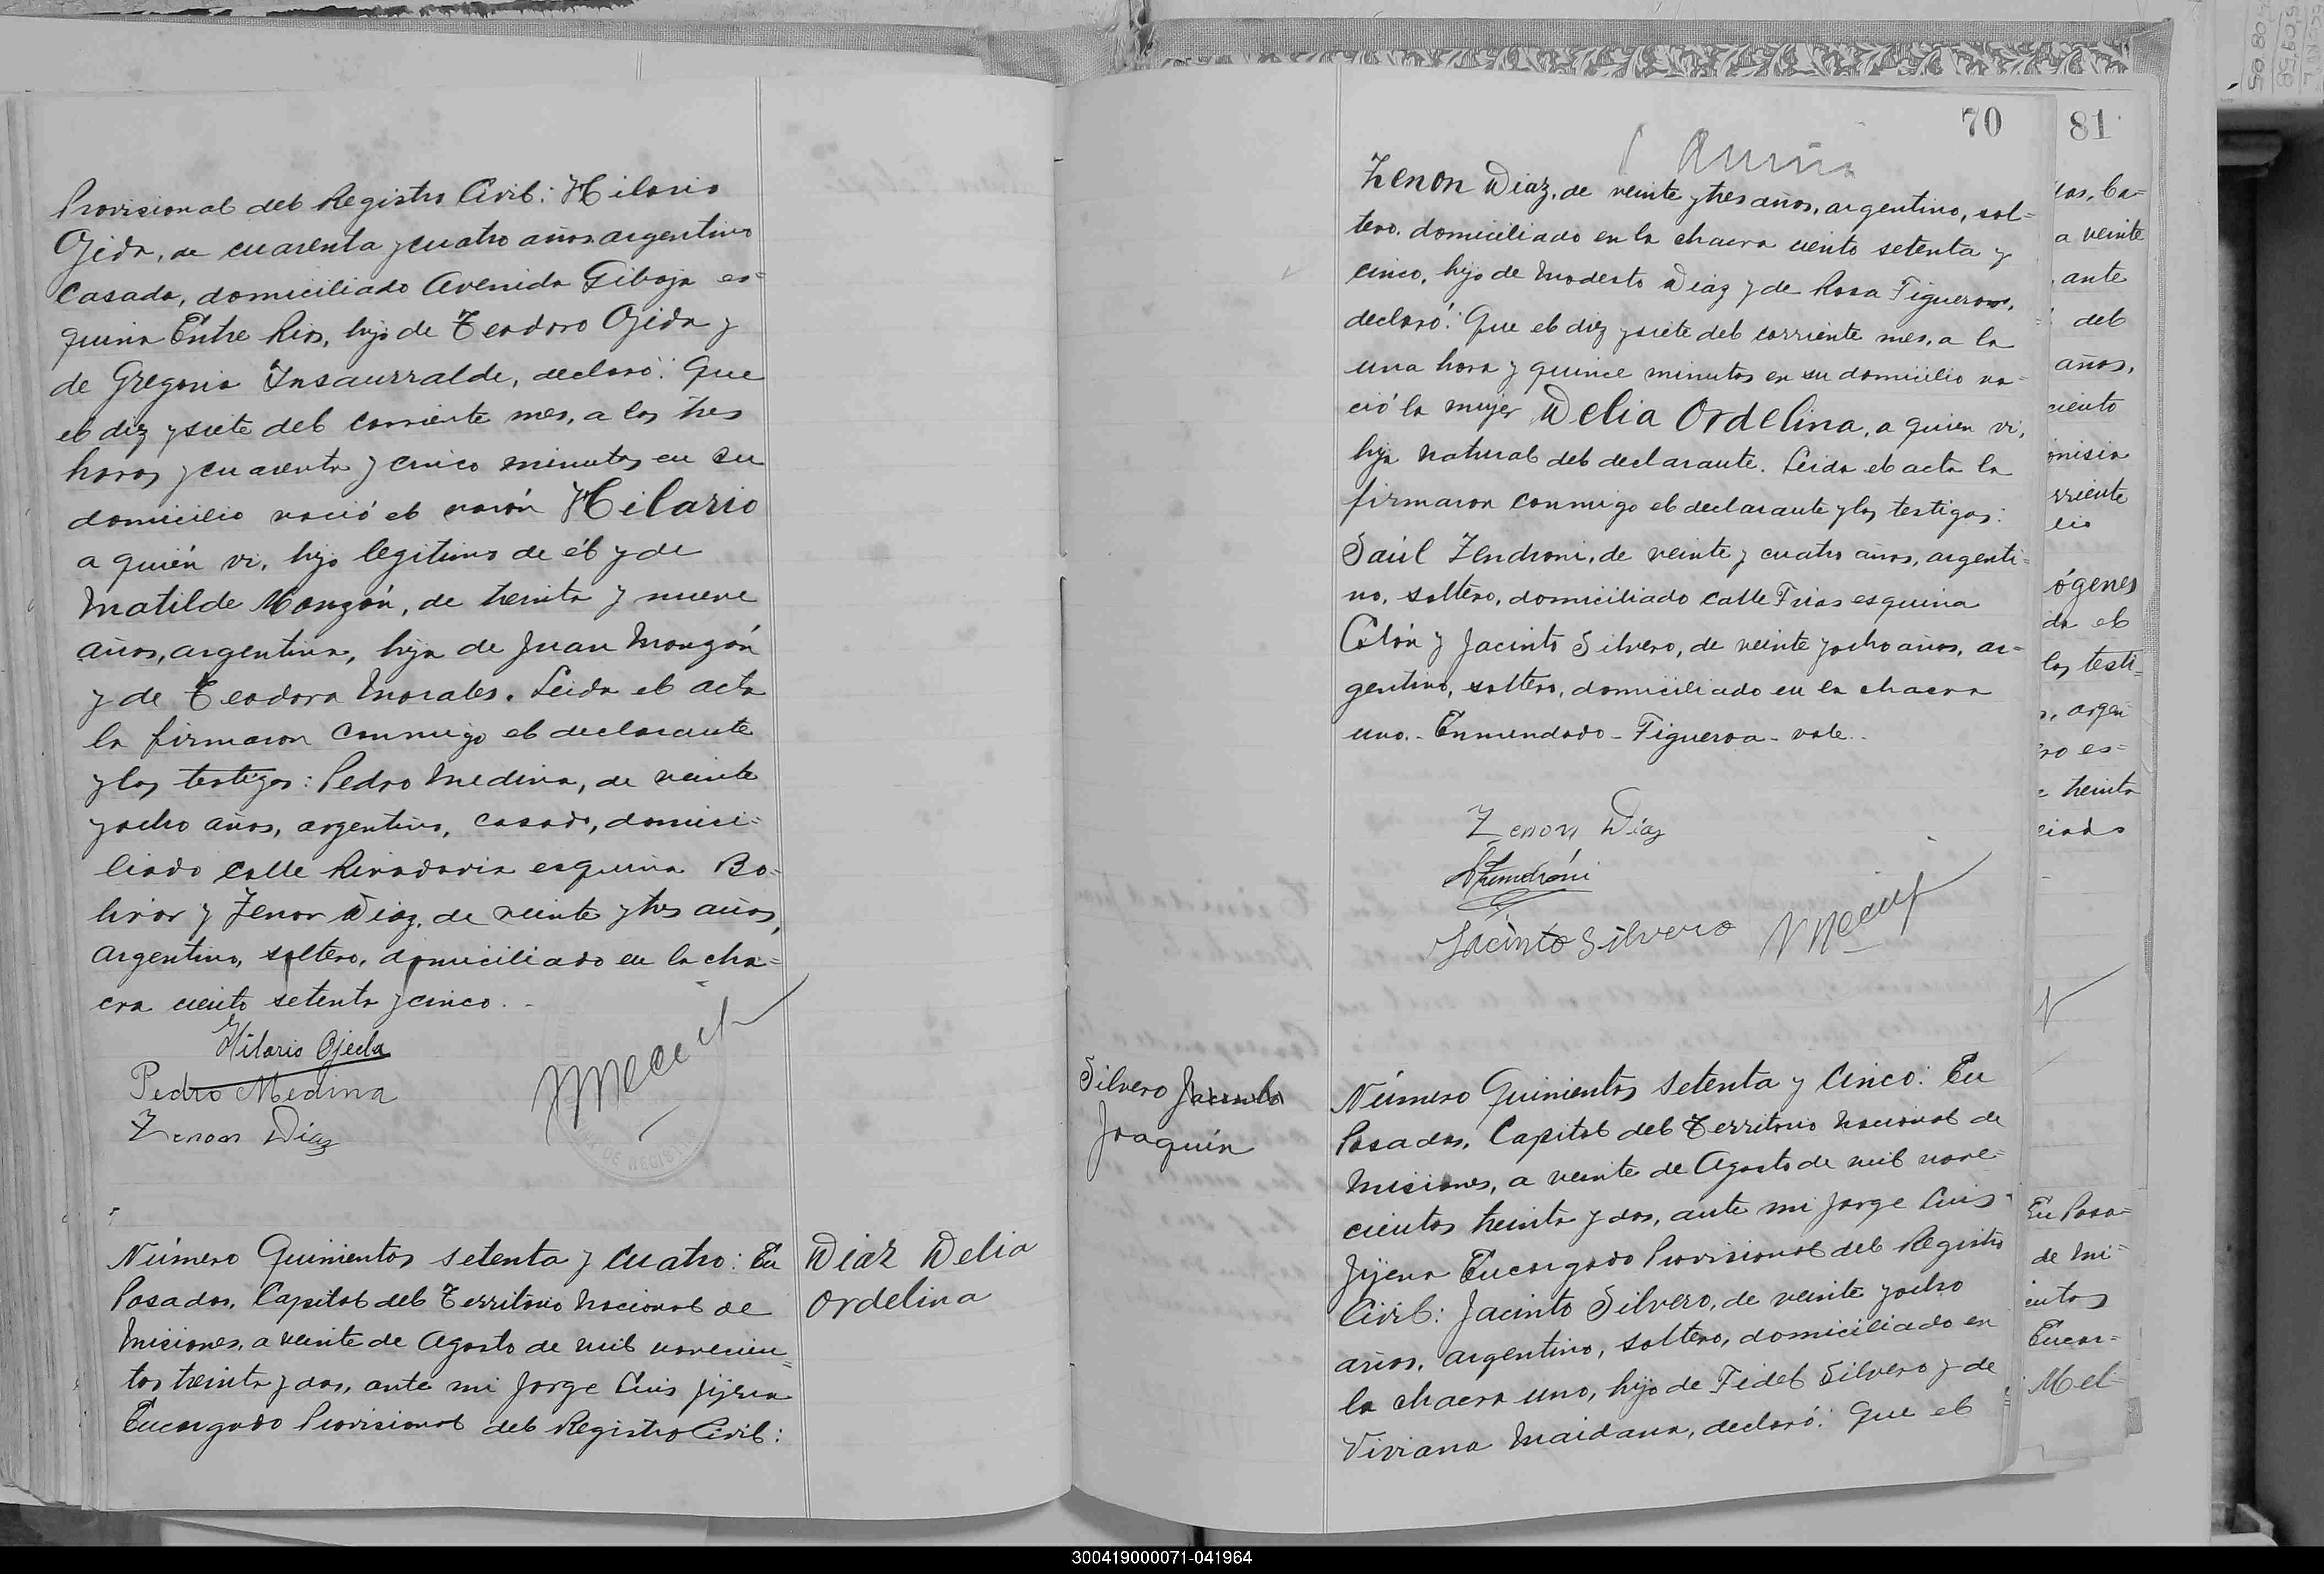 Provisional del Registro Civil: Hilario
Ojeda, de cuarenta y cuatro años argentino
casado, domiciliado Avenida Giboja es=
quina Entre Rios, hijo de Teodoro Ojeda y
de Gregoria Insaurralde, declaró: Que
el diez y siete del corriente mes, a las tres
horas y cuarenta y cinco minutos en su
domicilio nació el varón Hilario
a quién vi, hijo legitimo de él y de
Matilde Monzón, de treinta y nueve
años, argentina, hija de Juan Monzón
y de Teodora Morales. Leida el acta
la firmaron conmigo el declarante
y los testigos: Pedro Medina, de veinte
y ocho años, argentino, casado, domici=
liado calle Rivadavia esquina Bo=
livar y Zenon Diaz, de veinte y tres años,
argentino, soltero, domiciliado en la cha=
cra ciento setenta y cinco.
Hilario Ojeda
Pedro Medina
Zenon Diaz
Número Quinientos setenta y cuatro: En
Posadas, Capital del Territorio Nacional de
Misiones, a veinte de Agosto de mil novecien=
tos treinta y dos, ante mi Jorge Luis Jijena
Encargado Provisional del Registro Civil:
Diaz Delia
Ordelina
70
Zenon Diaz, de veinte y tres años, argentino, sol=
tero, domiciliado en la chacra ciento setenta y
cinco, hijo de Modesto Diaz y de Rosa Figueroa,
declaró: Que el diez y siete del corriente mes, a la
una hora y quince minutos en su domicilio na=
ció la mujer Delia Ordelina, a quien vi,
hija natural del declarante. Leida el acta la
firmaron conmigo el declarante y los testigos:
Saúl Zendroni, de veinte y cuatro años, argenti=
no, soltero, domiciliado calle Frias esquina
Colón y Jacinto Silvero, de veinte y ocho años, ar=
gentino, soltero, domiciliado en la chacra
uno.- Enmendado - Figueroa - vale.-
Zenon Diaz
Jacinto Silvero
Silvero
Joaquín
Número Quinientos setenta y cinco: En
Posadas, Capital del Territorio Nacional de
Misiones, a veinte de Agosto de mil nove=
cientos treinta y dos, ante mi Jorge Luis
Jijena Encargado Provisional del Registro
Civil: Jacinto Silvero, de veinte y ocho
años, argentino, soltero, domiciliado en
la chacra uno, hijo de Fidel Silvero y de
Viviana Maidana, declaró: Que el
81
a veinte
ante
del
años,
ciento
onisia
rriente
cio
ógenes
da el
los testi=
, argen
ro es=
treinta
ciado
En Posa=
de Mi=
entos
Encar=
Mel
300419000071-041964